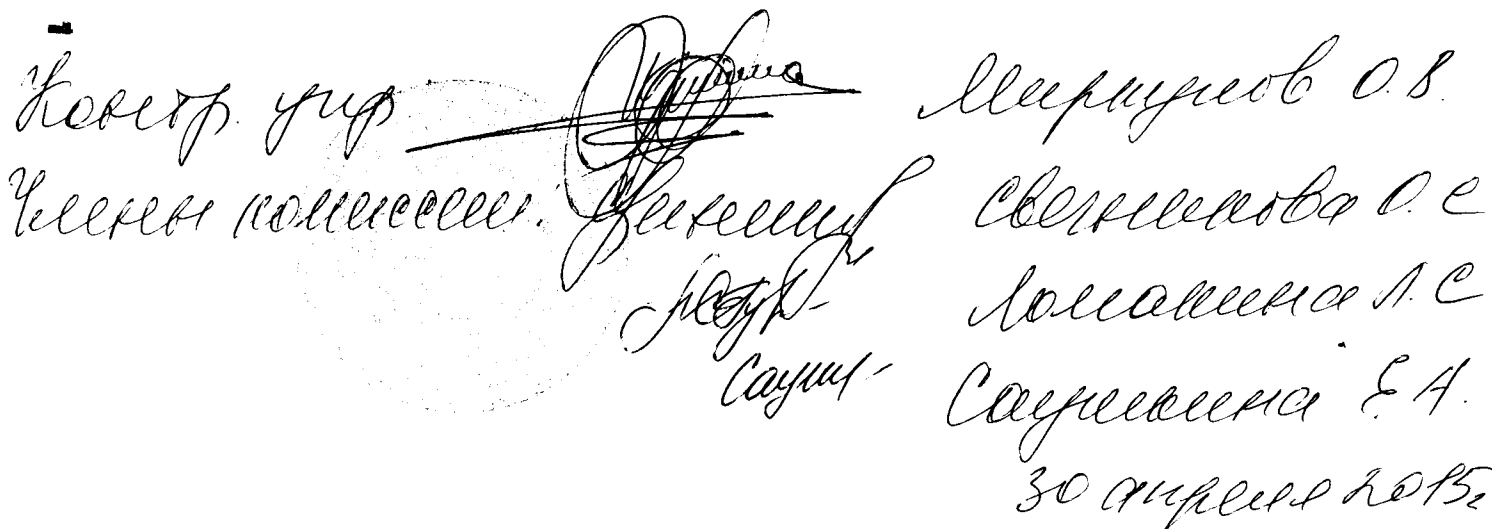 Контр. упр Миркулов О.В.
Члены комиссии: Свечникова О.С
Ломакина Л.С
Саушкина Е.А.
30 апреля 2015г